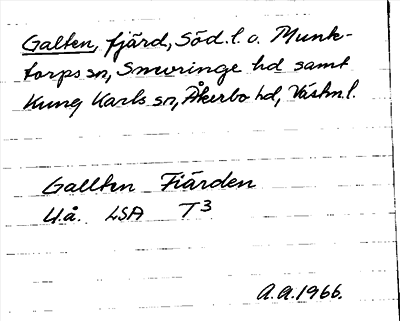 Galten, fjärd, Söd. l. o. Munk-
torps sn, Snevringe hd samt
Kung Karls sn, Åkerbo hd, Västm l.
Gallten Fiärden
U.å. LSA T3
A.A. 1966.